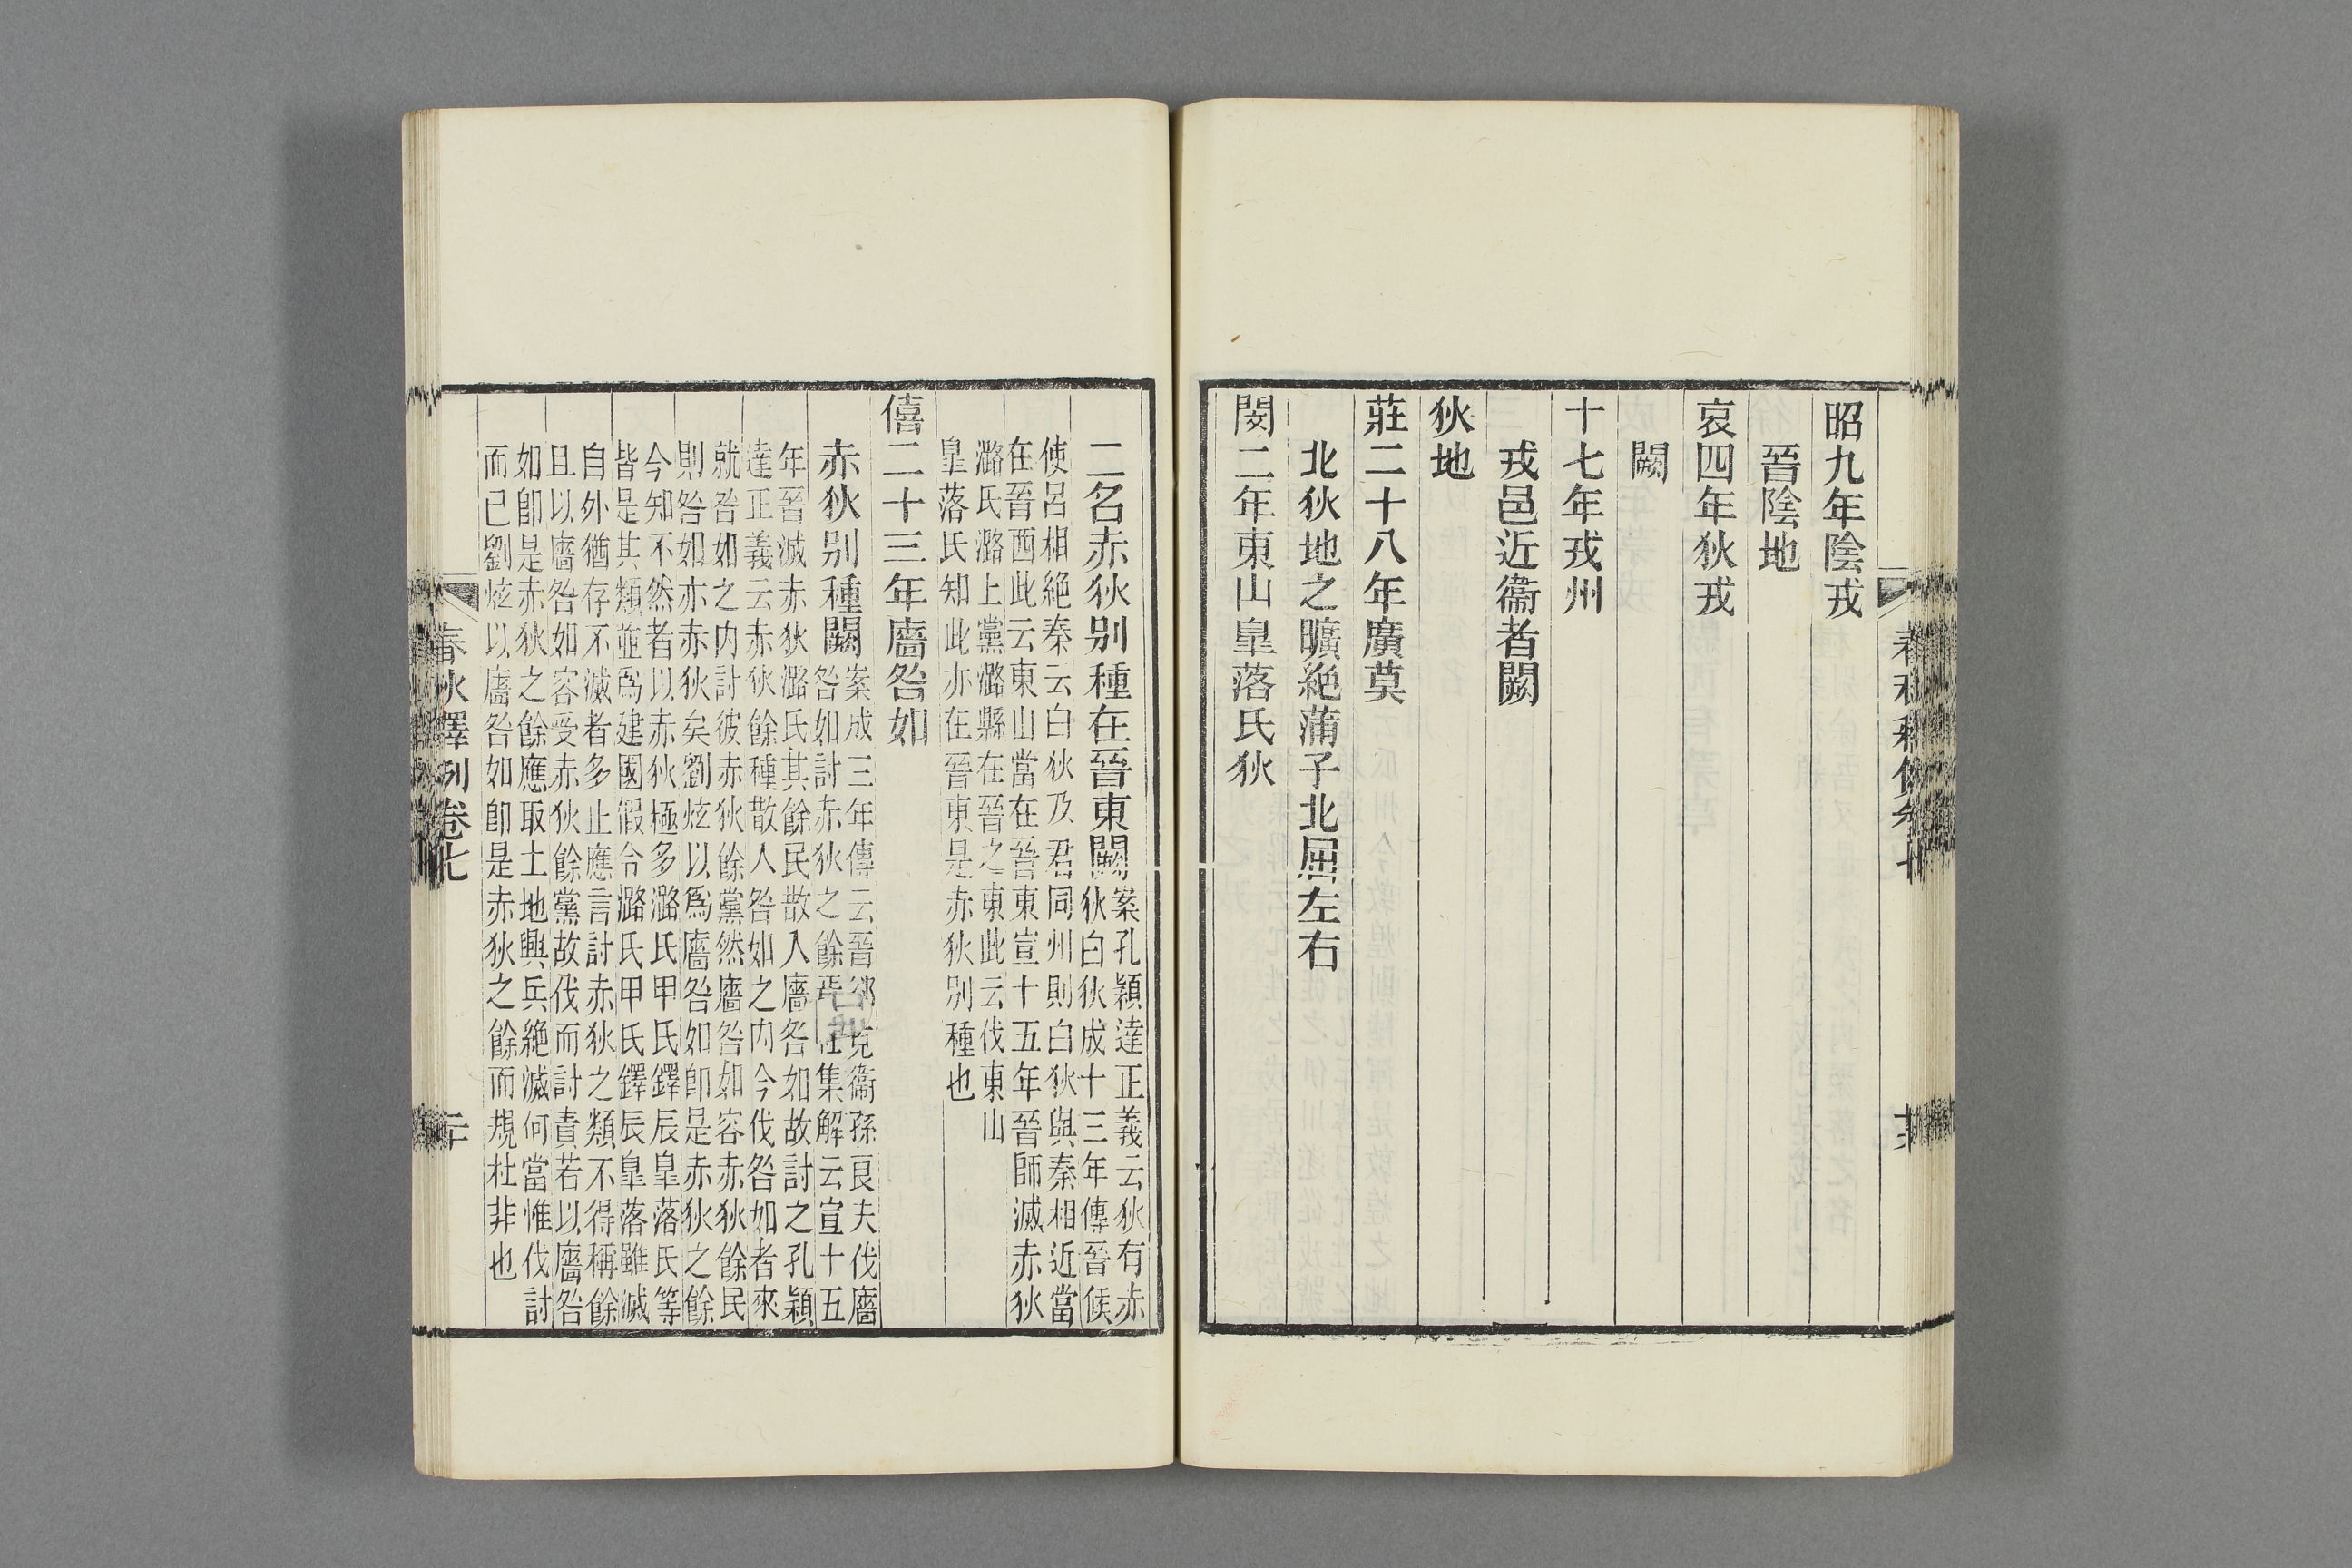 昭九年陰戎
晉陰地
哀四年狄戎
闕
十七年戎州
戎邑近衞者闕
狄地
莊二十八年廣莫
北狄地之曠絶蒲子北屈左右
閔二年東山皐落氏狄
二名赤狄别種在晉東闕
案孔穎達正義云狄有赤
狄白狄成十三年傳晉侯
使呂相絶秦云白狄及君同州則白狄與秦相近當
在晉西此云東山當在晉東宣十五年晉師滅赤狄
潞氏潞上黨潞縣在晉之東此云伐東山
皐落氏知此亦在晉東是赤狄别種也
僖二十三年廧咎如
赤狄别種闕
案成三年傳云晉郤克衞孫良夫伐廧
咎如討赤狄之餘焉杜集解云宣十五
年晉滅赤狄潞氏其餘民散入廧咎如故討之孔穎
達正義云赤狄餘種散入咎如之内今伐咎如者來
就咎如之内討彼赤狄餘黨然廧咎如容赤狄餘民
則咎如亦赤狄矣劉炫以爲廧咎如卽是赤狄之餘
今知不然者以赤狄極多潞氏甲氏鐸辰皐落氏等
皆是其類並爲建國假令潞氏甲氏鐸辰皐落雖滅
自外猶存不滅者多止應言討赤狄之類不得稱餘
且以廧咎如容受赤狄餘黨故伐而討責若以廧咎
如卽是赤狄之餘應取土地興兵絶滅何當惟伐討
而已劉炫以廧咎如卽是赤狄之餘而規杜非也
春秋釋例卷七